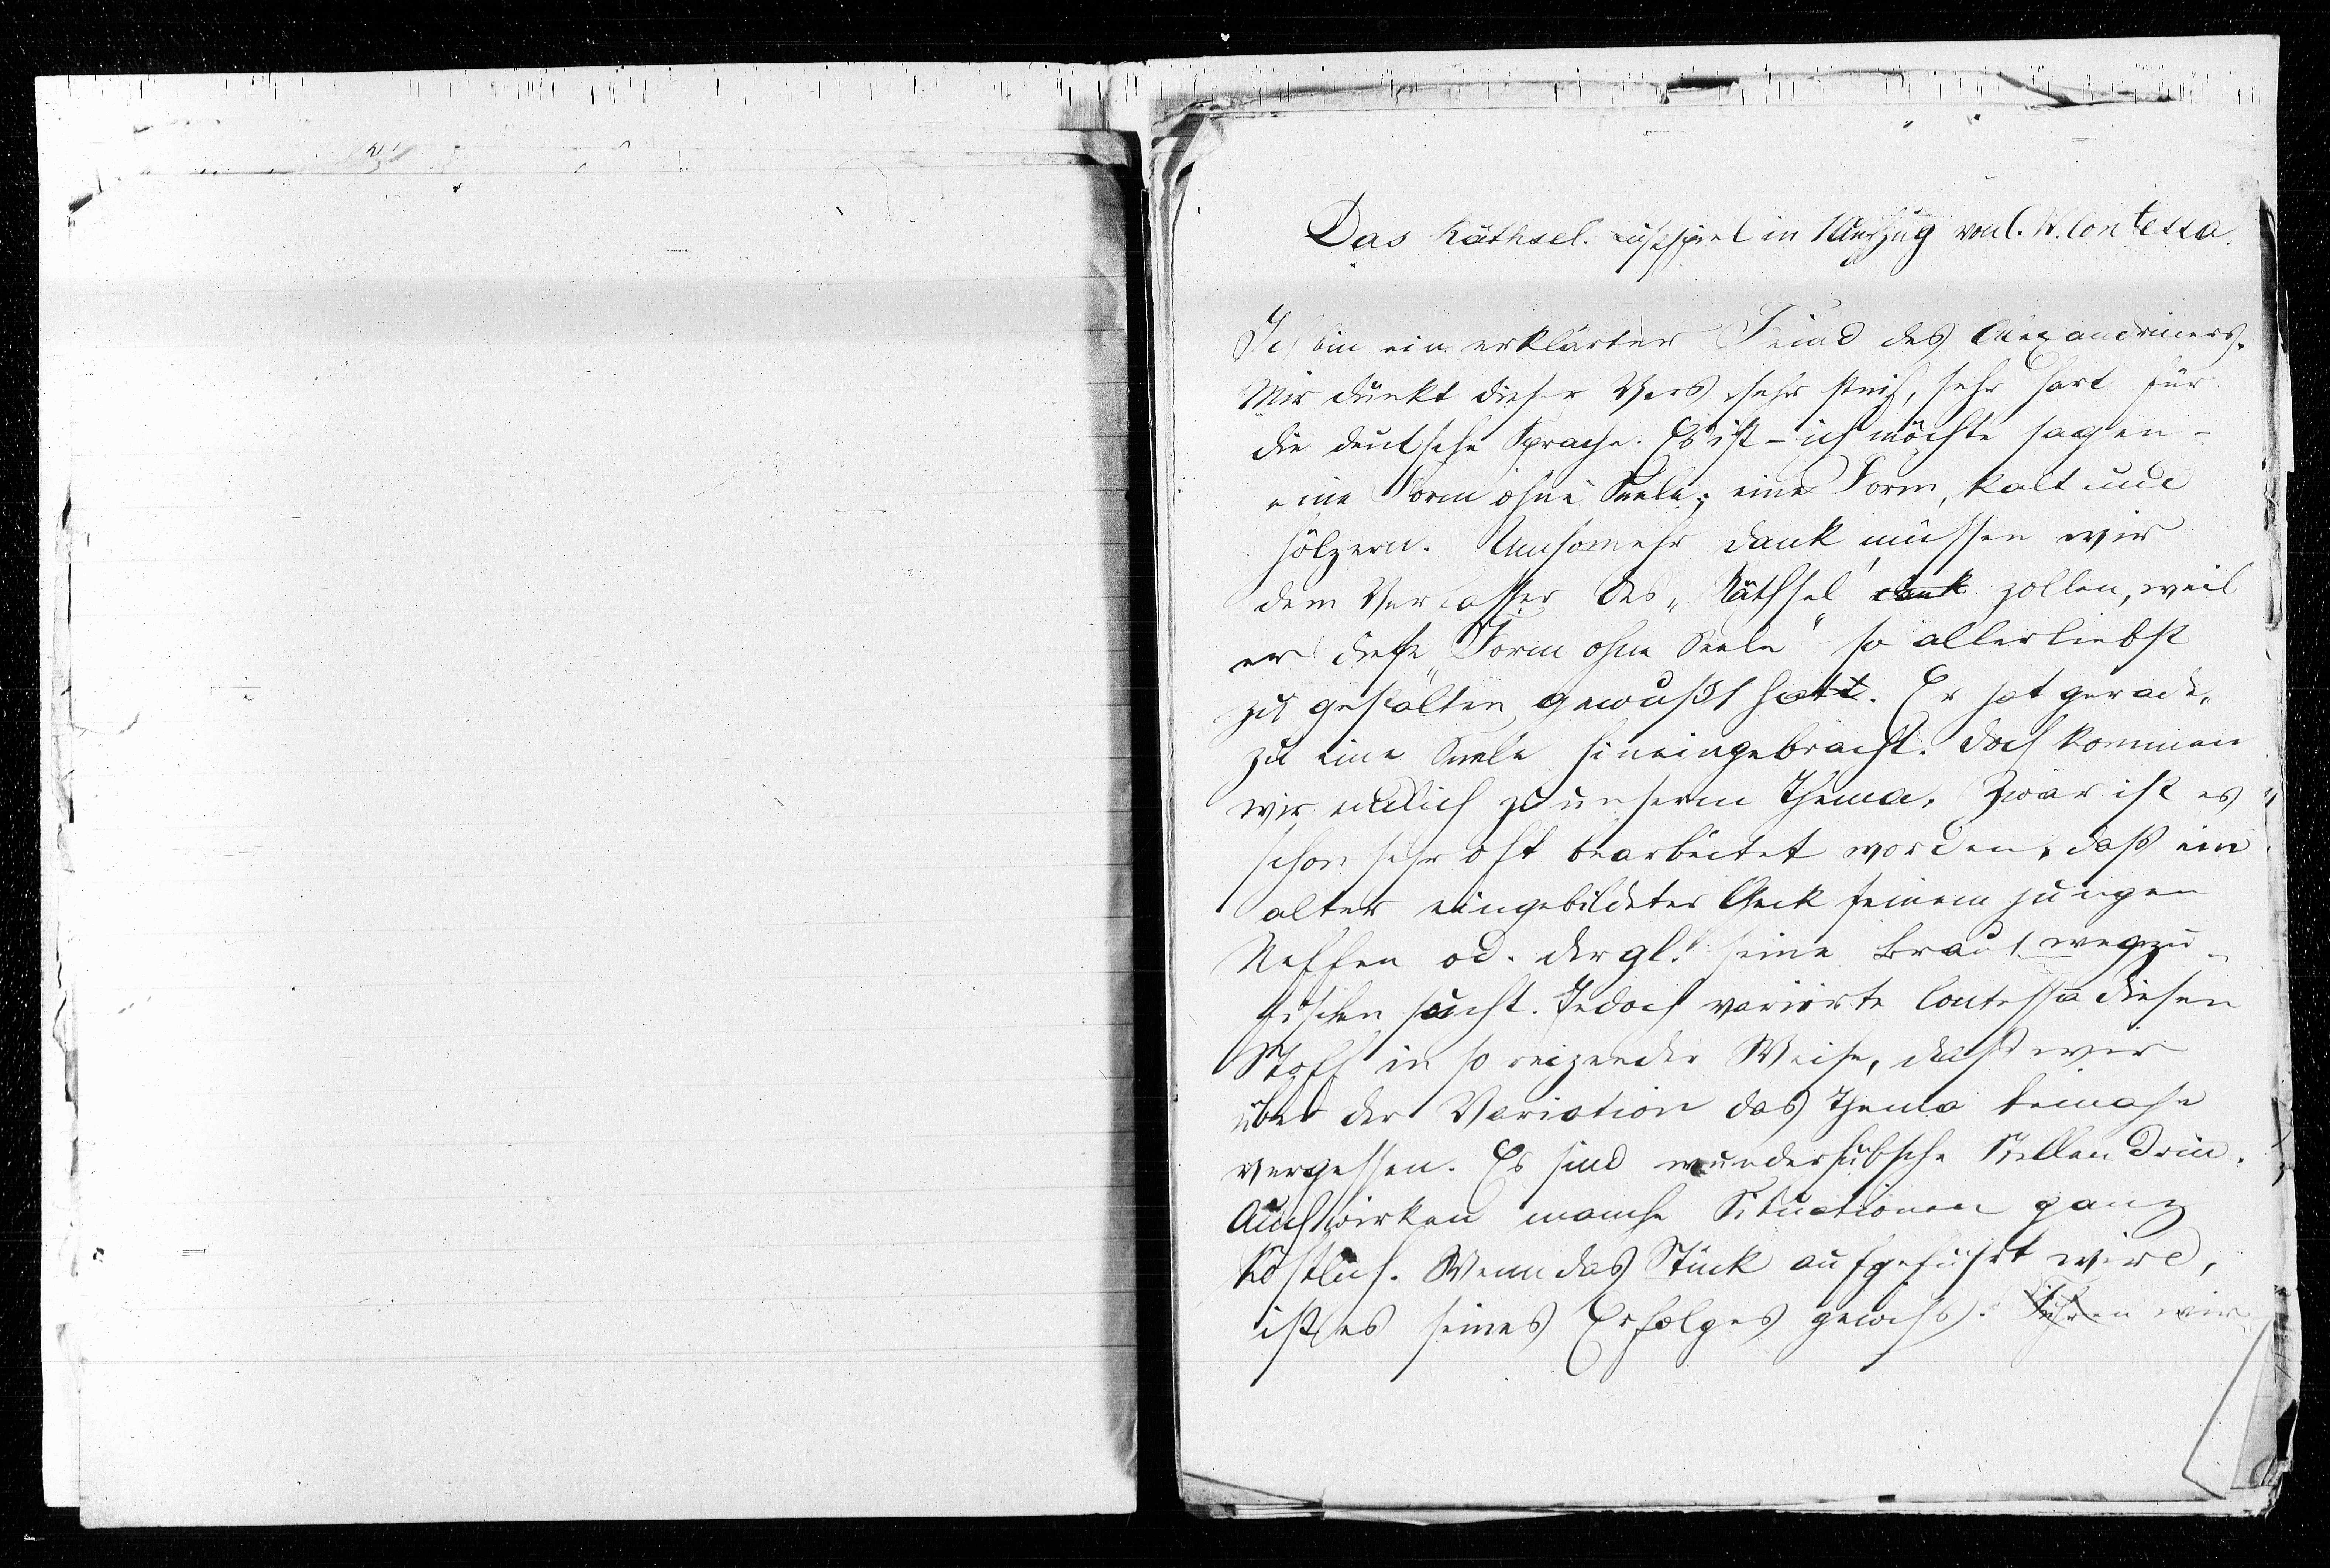 Das Räthsel. Lustspiel in 1 Aufzug von C. W. Contessa.
Ich bin ein erklärter Feind des Alexandriners.
Mir dünkt dieser Vers sehr steif, sehr hart für
die deutsche Sprache. Es ist – ich möchte sagen –
eine Form ohne Seele; eine Form, kalt und
hölzern. Umsomehr Dank müssen wir
dem Verfasser des „Räthsel" dank zollen, weil
er diese „Form ohne Seele" so allerliebst
zu gestalten gewußt hatt. Er hat gerade„
zu eine Seele hineingebracht. Doch kommen
wir endlich zu unserm Thema. Zwar ist es
schon sehr oft bearbeitet worden, daß ein
alter eingebildeter Geck seinem jungen
Neffen od. dergl. seine Braut wegzu„
fischen sucht. Jedoch variirte Contessa diesen
Stoff in so reizender Weise, daß wir
über der Variation das Thema beinahe
vergessen. Es sind wunderhübsche Stellen drin.
Auch wirken manche Situationen ganz
köstlich. Wenn das Stück aufgeführt wird,
ist es seines Erfolges gewiß. Führen wir